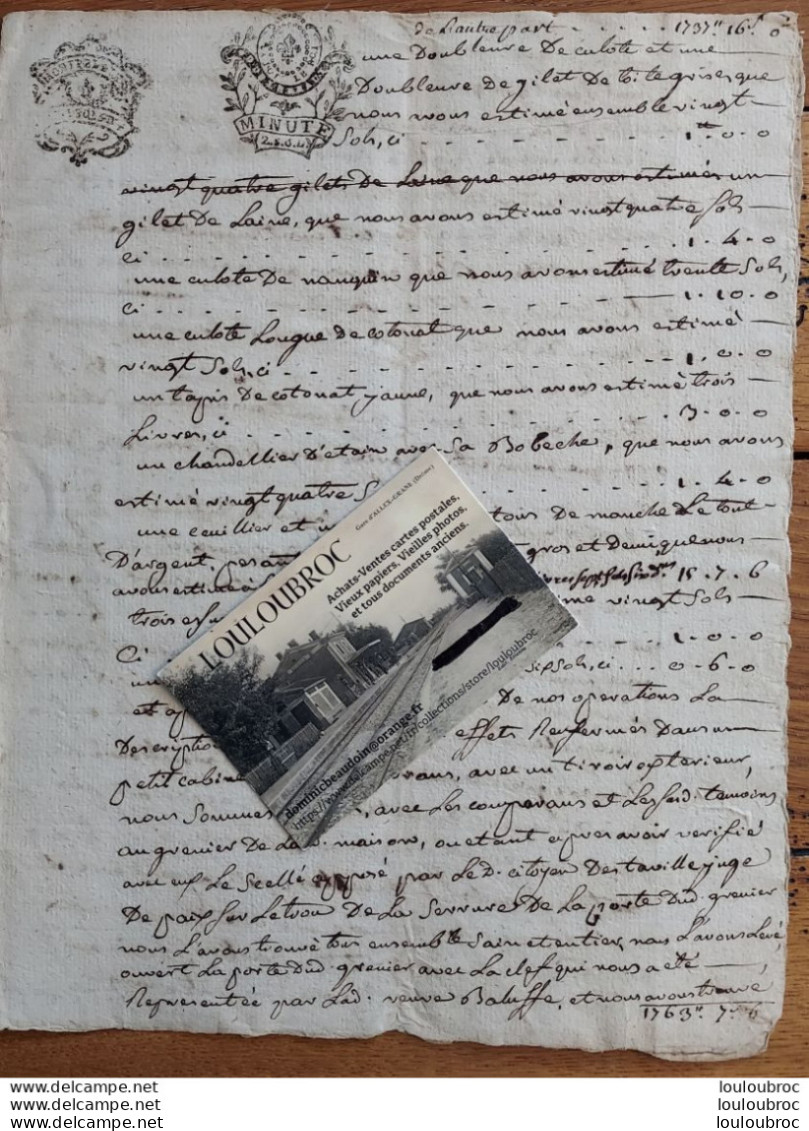 de L'autre part . . . . . 1737ᴴ 16ˢ 0
MINUTE
2. S. 6. D.
une Doubleure De culote et une
Doubleure De gilet De toile grise que
nous avons estimé ensemble vingt
Sols, ci . . . 1ᴴ 0 . 0
vingt quatre gilets De Laine que nous avons estimés un
gilet De Laine, que nous avons estimé vingt quatre sols
ci . . . 1 . 4 . 0
une culote De nanquin que nous avons estimé trente Sols,
ci . . . 1 . 10 . 0
une culote Longue de cotonat que nous avons estimé
vingt Sols, ci . . . 1 . 0 . 0
un tapis De cotonat jaune, que nous avons estimé trois
Livres, ci . . . 3 . 0 . 0
un chandellier D'etain avec Sa Bobeche, que nous avons
estimé vingt quatre S 1 . 4 . 0
une ceuillier et de manche Le tout
D'argent, pesant gros et Demi que nous
avons estimé 15 . 7 . 6
trois vingt Sols
Ci 1 . 0 . 0
six Sols, ci . . . 0 . 6 . 0
et De nos operations La
Description effets Renfermés Dans un
petit cabinet avec un tiroir exterieur,
nous Sommes avec Les comparans et Lesd. temoins
au grenier De Lad. maison, ou etant apres avoir verifié
avec eux Le Scellé apposé par Led. citoyen Destaville juge
De paix Sur Le trou De La Serrure De La porte Dud. grenier
nous L'avons trouvé tous ensemble Sain et entier, nous L'avons Levé,
ouvert La porte Dud. grenier avec La clef qui nous a eté
Representée par Lad. veuve Baluffe, et nous avons trouvé
1763ᴴ 7ˢ 6
Gare d'ALLEX-GRANE (Drôme)
LOULOUBROC
Achats-Ventes cartes postales,
Vieux papiers, Vieilles photos,
et tous documents anciens.
dominicbeaudoin@orange.fr
louloubroc
louloubroc
louloubroc